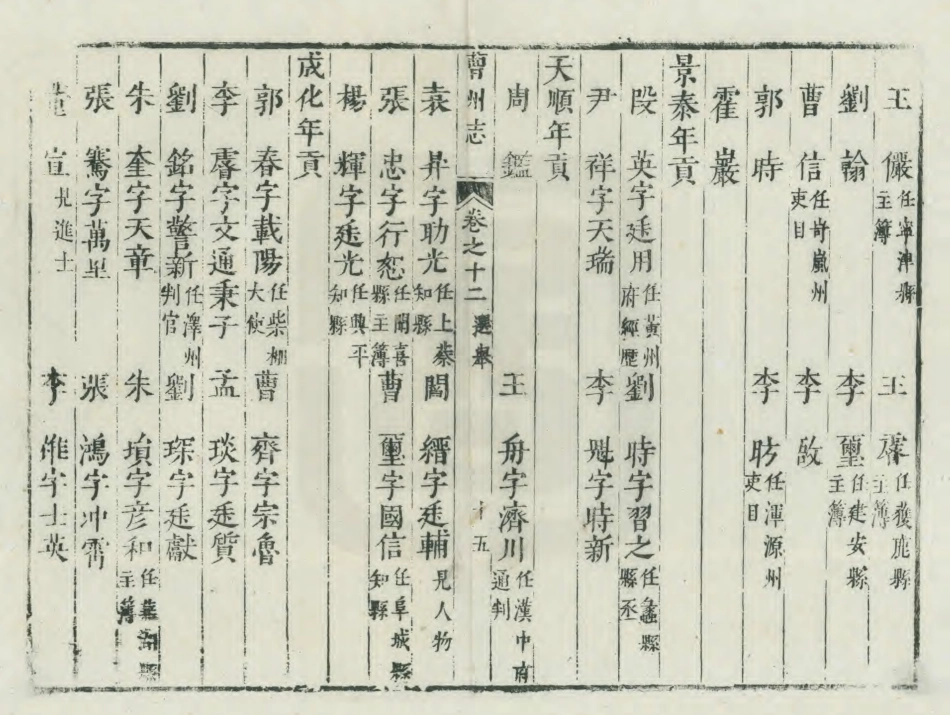 王 儼 任寧津縣主簿 王 任獲鹿縣主簿
劉 翰 李 璽 任建安縣主簿
曹 信 任岢嵐州吏目 李 敔
郭 時 李 昉 任渾源州吏目
霍 巖
景泰年貢
段 英字廷用 任黃州府經歷 劉 時字習之 任蠡縣縣丞
尹 祥字天瑞 李 魁字時新
天順年貢
周 鑑 王 舟字濟川 任漢中府通判
曹州志 卷之十二 選舉 十五
袁 昇字助光 任上蔡知縣 閻 縉字廷輔 見人物
張 忠字行恕 任聞喜縣主簿 曹 璽字國信 任阜城縣知縣
楊 輝字廷光 任興平知縣
成化年貢
郭 春字載陽 任柴棚大使 曹 齊字宗魯
李 睿字文通秉子 孟 琰字廷質
劉 銘字警新 任澤州判官 劉 琛字廷獻
朱 奎字天章 朱 瑱字彦和 任蕪湖縣主簿
張 騫字萬里 張 鴻字冲霄
董 宣 見進士 李 雅字士英